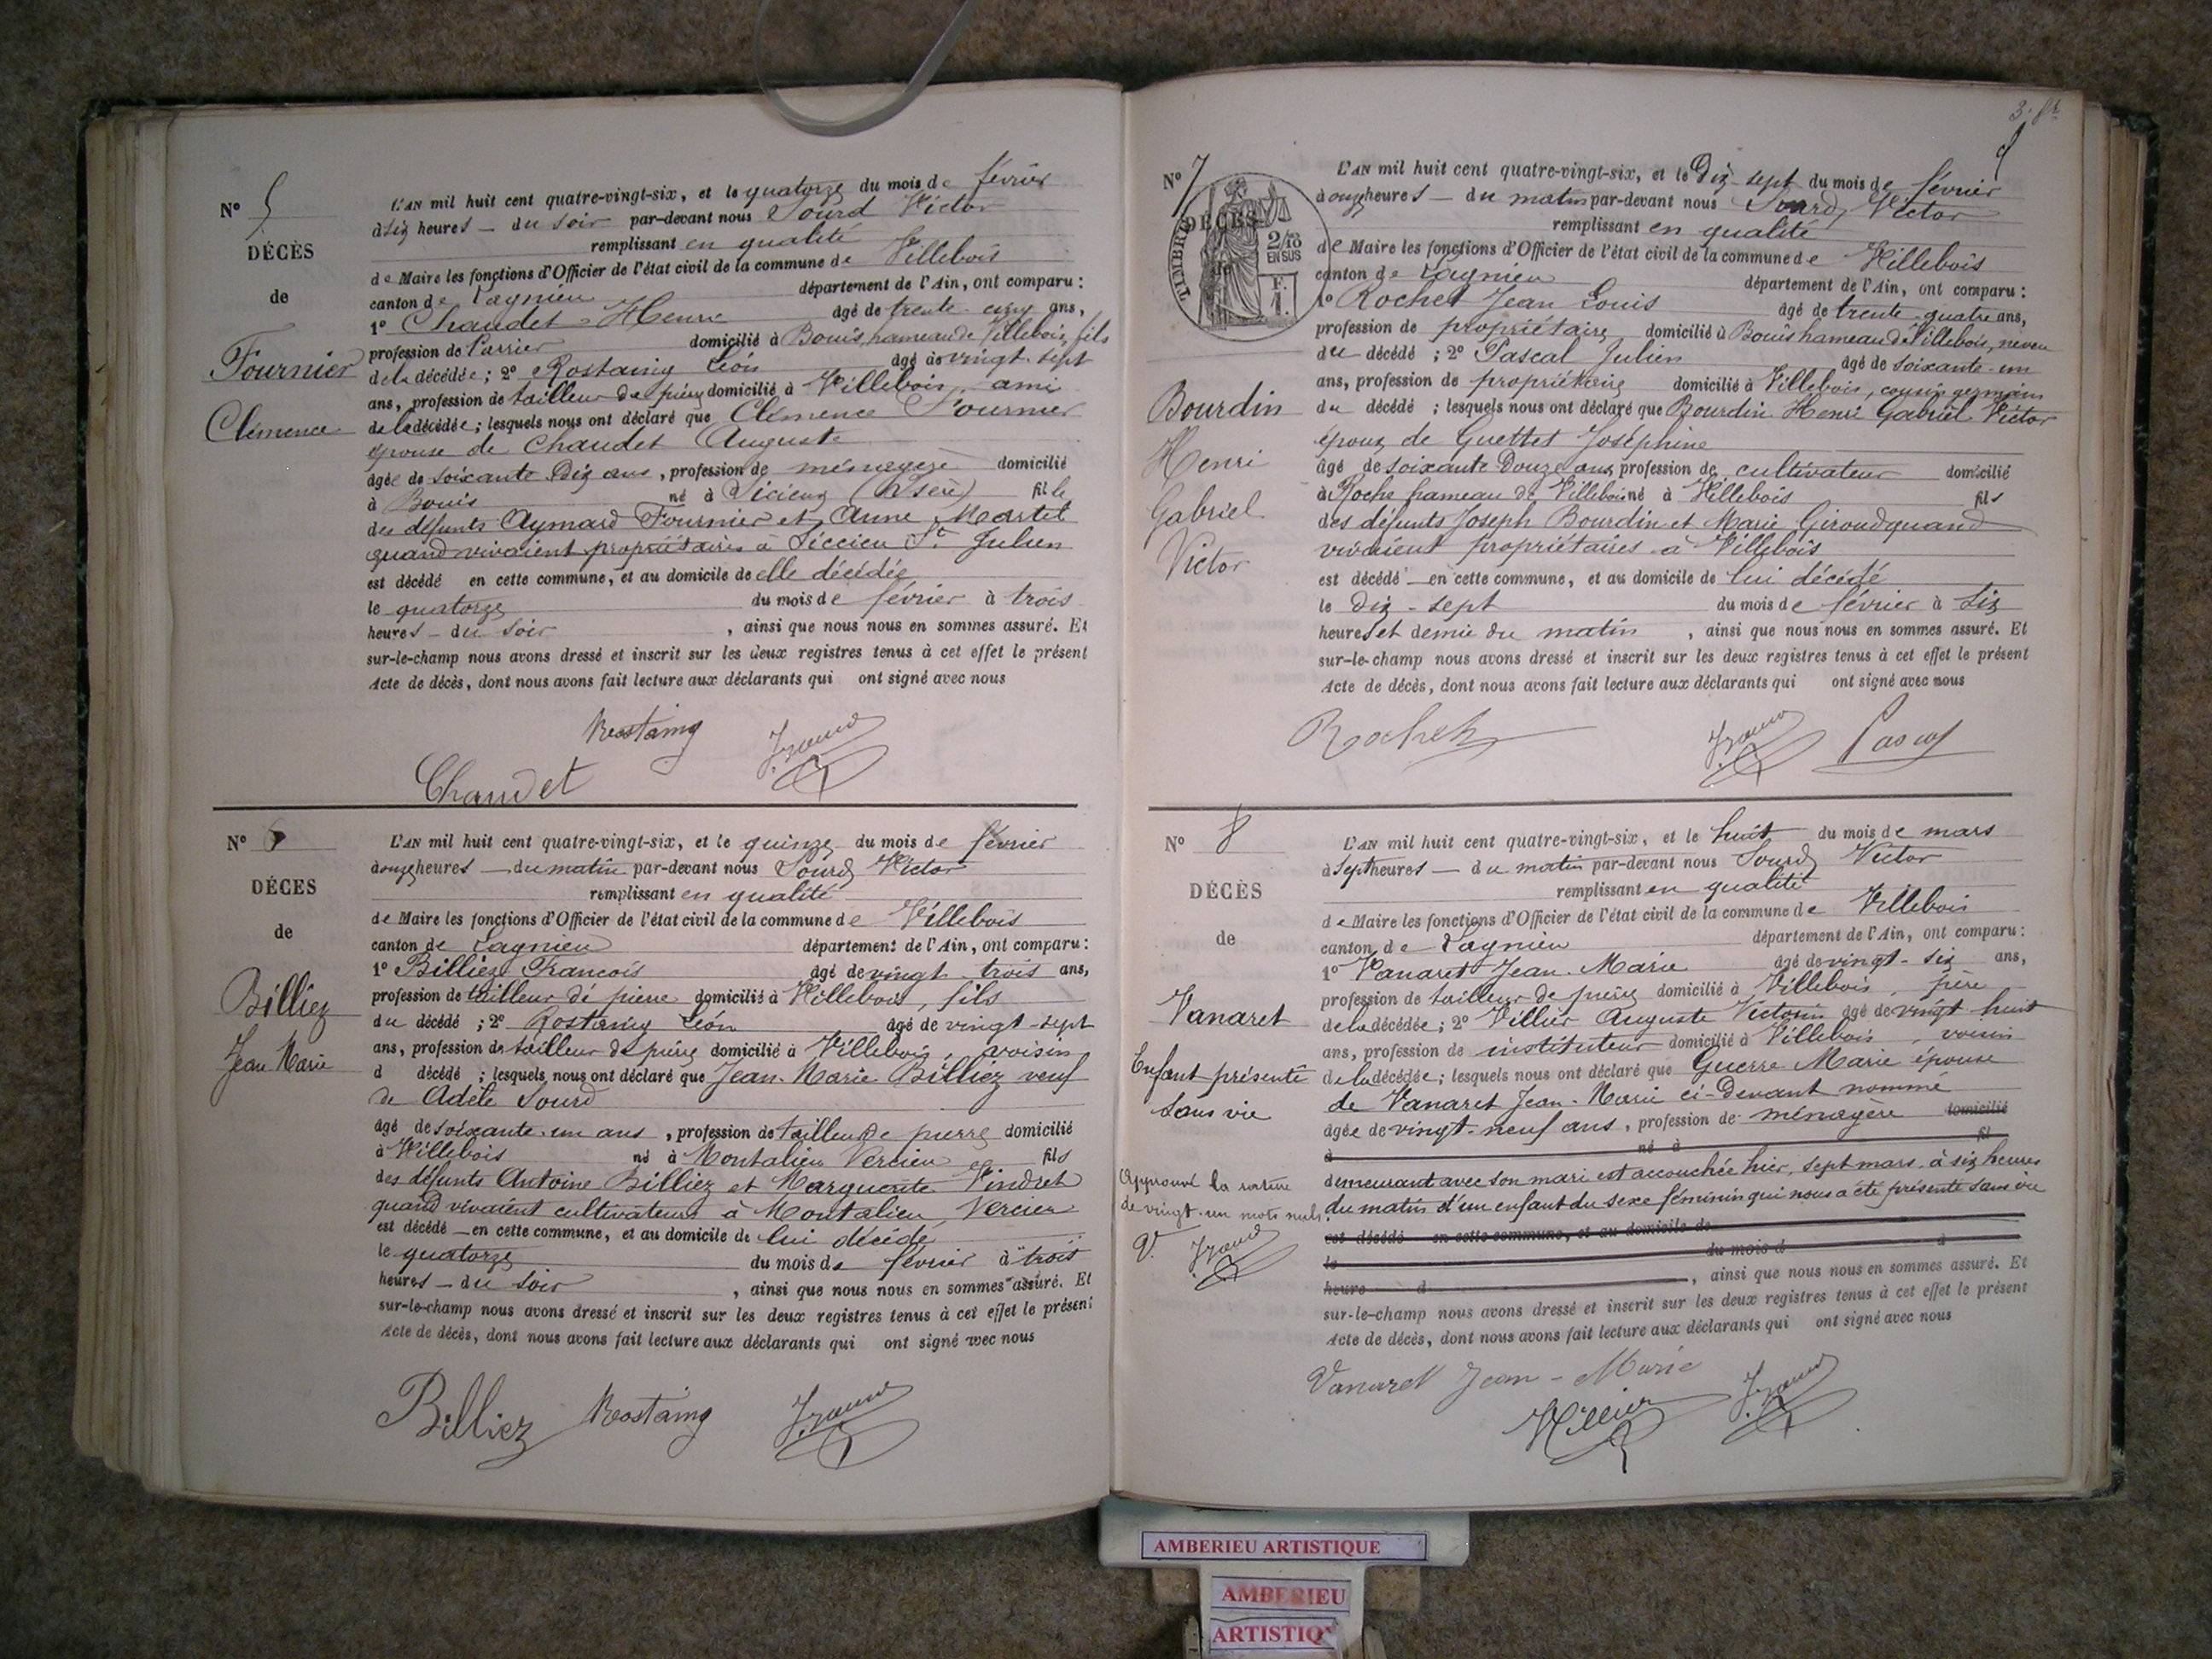 N° 5
DÉCÈS
de
Fournier
Clémence
L'AN mil huit cent quatre-vingt-six, et le quatorze du mois de février
à six heures – du soir par-devant nous Sourd Victor
remplissant en qualité
de Maire les fonctions d'Officier de l'état civil de la commune de Villebois
canton de Lagnieu département de l'Ain, ont comparu :
1° Chaudet Henri âgé de trente-cinq ans,
profession de Carrier domicilié à Bouis, hameau de Villebois, fils
de la décédée ; 2° Rostaing Léon âgé de vingt-sept
ans, profession de tailleur de pierre domicilié à Villebois, ami
de la décédée ; lesquels nous ont déclaré que Clémence Fournier
épouse de Chaudet Auguste
âgée de soixante Dix ans, profession de ménagère domicilié
à Bouis né à (Isère) fille
des défunts Aymard Fournier et Anne Martel
quand vivaient propriétaires à Siccieu St Julien
est décédé en cette commune, et au domicile de elle décédée
le quatorze du mois de février à trois
heures – du soir , ainsi que nous nous en sommes assuré. Et
sur-le-champ nous avons dressé et inscrit sur les deux registres tenus à cet effet le présent
Acte de décès, dont nous avons fait lecture aux déclarants qui ont signé avec nous
Rostaing
Chaudet
N° 6
DÉCÈS
de
Billiez
Jean Marie
L'AN mil huit cent quatre-vingt-six, et le quinze du mois de février
à onze heures – du matin par-devant nous Sourd Victor
remplissant en qualité
de Maire les fonctions d'Officier de l'état civil de la commune de Villebois
canton de Lagnieu département de l'Ain, ont comparu :
1° Billiez François âgé de vingt-trois ans,
profession de tailleur de pierre domicilié à Villebois, fils
du décédé ; 2° Rostaing Léon âgé de vingt-sept
ans, profession de tailleur de pierre domicilié à Villebois, voisin
d décédé ; lesquels nous ont déclaré que Jean-Marie Billiez veuf
de Adèle Sourd
âgé de soixante-un ans, profession de tailleur de pierre domicilié
à Villebois né à Montalieu Vercieu fils
des défunts Antoine Billiez et Marguerite Vindret
quand vivaient cultivateurs à Montalieu Vercieu
est décédé – en cette commune, et au domicile de lui décédé
le quatorze du mois de février à trois
heures – du soir , ainsi que nous nous en sommes assuré. Et
sur-le-champ nous avons dressé et inscrit sur les deux registres tenus à cet effet le présent
Acte de décès, dont nous avons fait lecture aux déclarants qui ont signé avec nous
Billiez Rostaing
N° 7
TIMBRE
DÉCÈS
de
2/10
EN SUS
F.
1.
Bourdin
Henri
Gabriel
Victor
L'AN mil huit cent quatre-vingt-six, et le Dix-sept du mois de février
à onze heures – du matin par-devant nous Sourd Victor
remplissant en qualité
de Maire les fonctions d'Officier de l'état civil de la commune de Villebois
canton de Lagnieu département de l'Ain, ont comparu :
1° Rochet Jean Louis âgé de trente-quatre ans,
profession de propriétaire domicilié à Bouis hameau de Villebois, neveu
du décédé ; 2° Pascal Julien âgé de soixante-un
ans, profession de propriétaire domicilié à Villebois, cousin germain
du décédé ; lesquels nous ont déclaré que Bourdin Henri Gabriel Victor
époux de Guettet Joséphine
âgé de soixante Douze ans, profession de cultivateur domicilié
à Roche hameau de Villebois né à Villebois fils
des défunts Joseph Bourdin et Marie Giroud quand
vivaient propriétaires à Villebois
est décédé – en cette commune, et au domicile de lui décédé
le dix-sept du mois de février à six
heures et demie du matin , ainsi que nous nous en sommes assuré. Et
sur-le-champ nous avons dressé et inscrit sur les deux registres tenus à cet effet le présent
Acte de décès, dont nous avons fait lecture aux déclarants qui ont signé avec nous
Rochet Pascal
N° 8
DÉCÈS
de
Vanaret
Enfant présenté
sans vie
Approuvé la rature
de vingt-un mots nuls.
V.
L'AN mil huit cent quatre-vingt-six, et le huit du mois de mars
à sept heures – du matin par-devant nous Sourd Victor
remplissant en qualité
de Maire les fonctions d'Officier de l'état civil de la commune de Villebois
canton de Lagnieu département de l'Ain, ont comparu :
1° Vanaret Jean-Marie âgé de vingt-six ans,
profession de tailleur de pierre domicilié à Villebois, père
de la décédée ; 2° Villier Auguste Victorin âgé de vingt-huit
ans, profession de instituteur domicilié à Villebois, voisin
de la décédée ; lesquels nous ont déclaré que Guerre Marie épouse
de Vanaret Jean-Marie ci-Devant nommé
âgée de vingt-neuf ans, profession de ménagère domicilié
à né à fil
demeurant avec son mari est accouchée hier, sept mars, à six heures
du matin d'un enfant du sexe féminin qui nous a été présenté sans vie
est décédé en cette commune, et au domicile de
le du mois d à
heure d , ainsi que nous nous en sommes assuré. Et
sur-le-champ nous avons dressé et inscrit sur les deux registres tenus à cet effet le présent
Acte de décès, dont nous avons fait lecture aux déclarants qui ont signé avec nous
Vanaret Jean-Marie
Villier
AMBERIEU ARTISTIQUE
AMBERIEU
ARTISTIQ